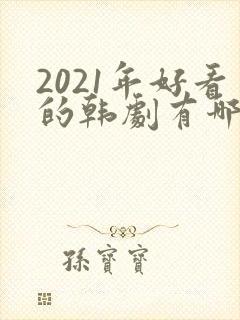 2021年好看
的韩劇有哪
孫寶寶